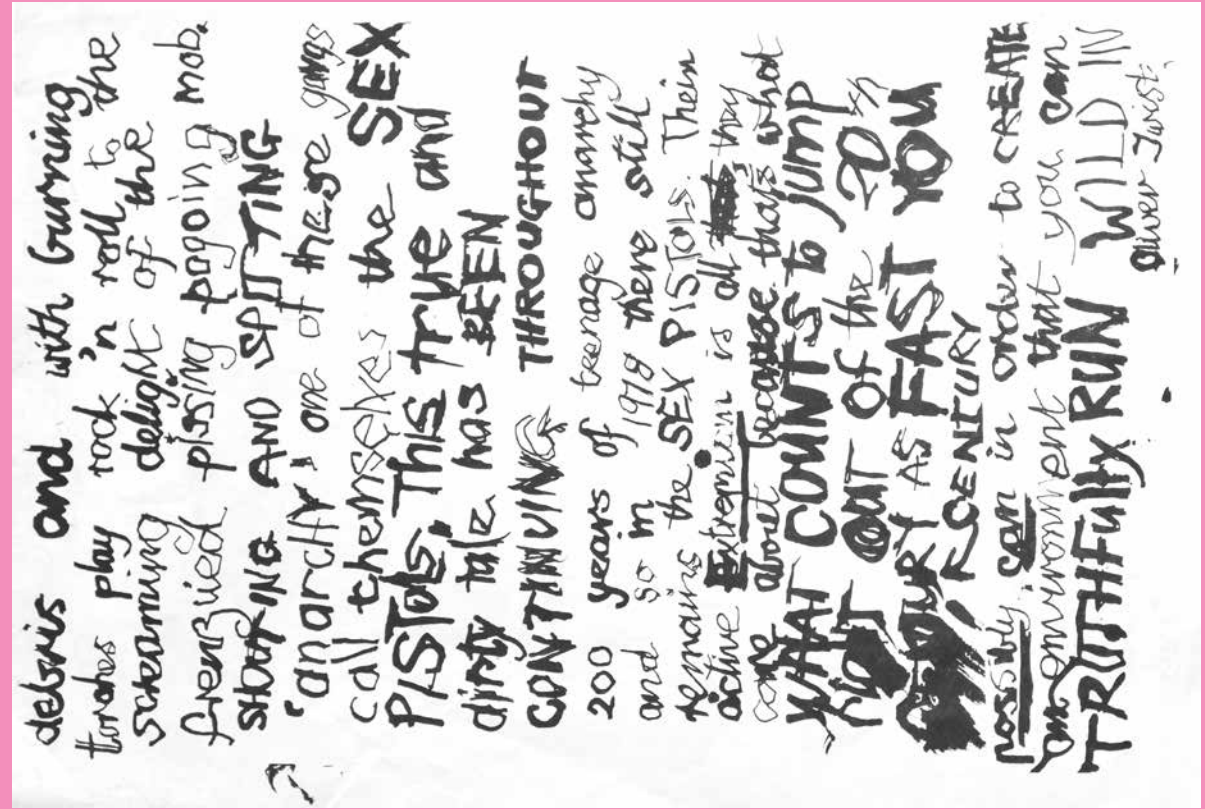 debris and with burning
torches play rock 'n roll to the
screaming delight of the
frenzied pissing pogoing mob.
SHOUTING AND SPITTING
'anarchy' one of these gangs
call themselves the SEX
PISTOLS. This true and
dirty tale has BEEN
CONTINUING THROUGHOUT
200 years of teenage anarchy
and so in 1978 there still
remains the SEX PISTOLS. Their
active Extremism is all they
care about because thats what
WHAT COUNTS to jump
RIGHT OUT of the 20th
CENTURY AS FAST YOU
CENTURY
possibly can in order to CREATE
an environment that you can
TRUTHFully RUN WILD IN
Oliver Twist.